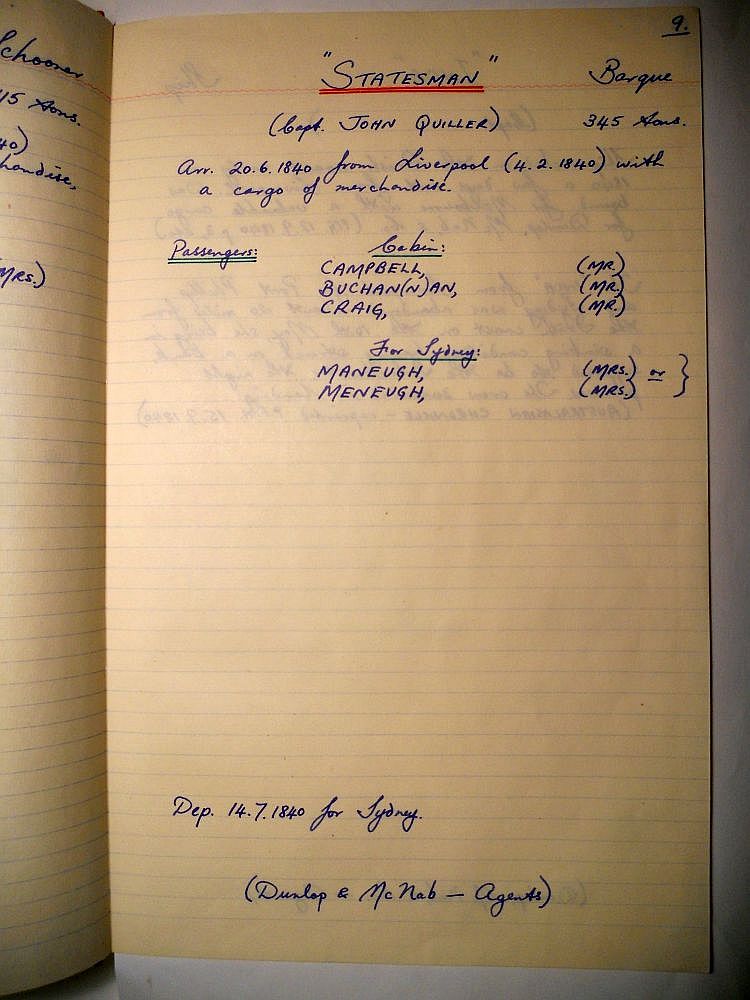 Schooner
15 tons.
40)
handise,
MRS.)
9.
"STATESMAN" Barque
(Capt. JOHN QUILLER) 345 tons.
Arr. 20.6.1840 from Liverpool (4.2.1840) with
a cargo of merchandise.
Passengers: Cabin:
CAMPBELL, (MR.)
BUCHAN(N)AN, (MR.)
CRAIG, (MR.)
For Sydney:
MANEUGH, (MRS.) or }
MENEUGH, (MRS.)
Dep. 14.7.1840 for Sydney.
(Dunlop & McNab — Agents)